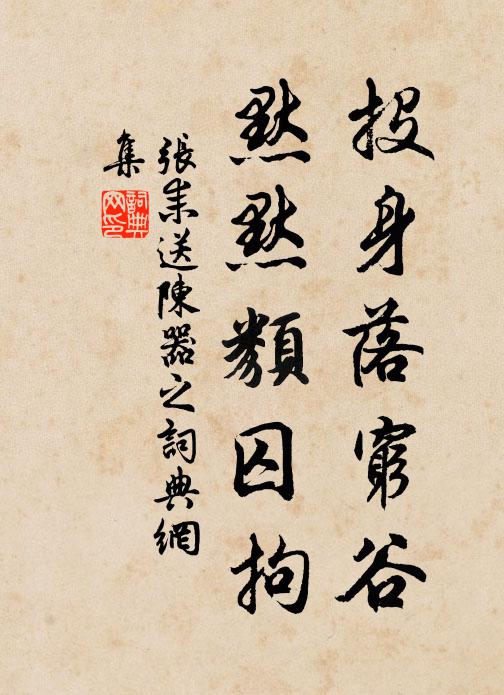 投身落窮谷
默默類囚拘
張耒送陳器之詞典網
集
詞典
网印